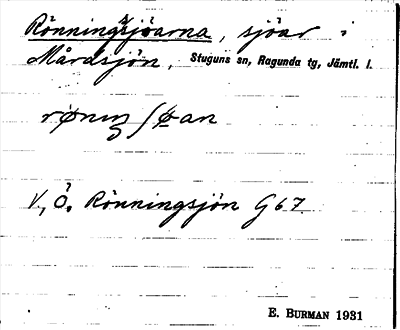 Rönningsjöarna, sjöar i
Mårdsjön, Stuguns sn, Ragunda tg, Jämtl. l.
V, Ö. Rönningsjön G67.
E. BURMAN 1931